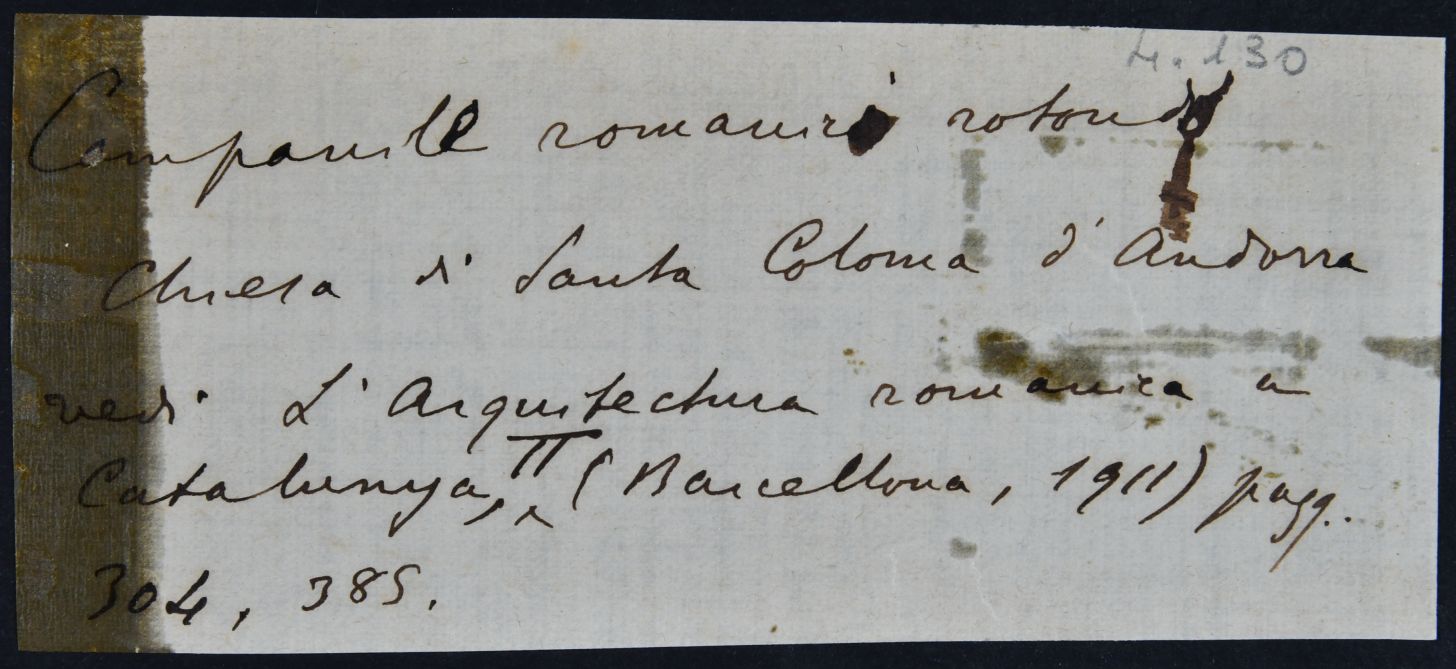 4.130
Campanile romanico rotondo
Chiesa di Santa Coloma d'Andorra
vedi L'Arquitectura romanica a
Catalunya, II (Barcellona, 1911) pagg.
304, 385.